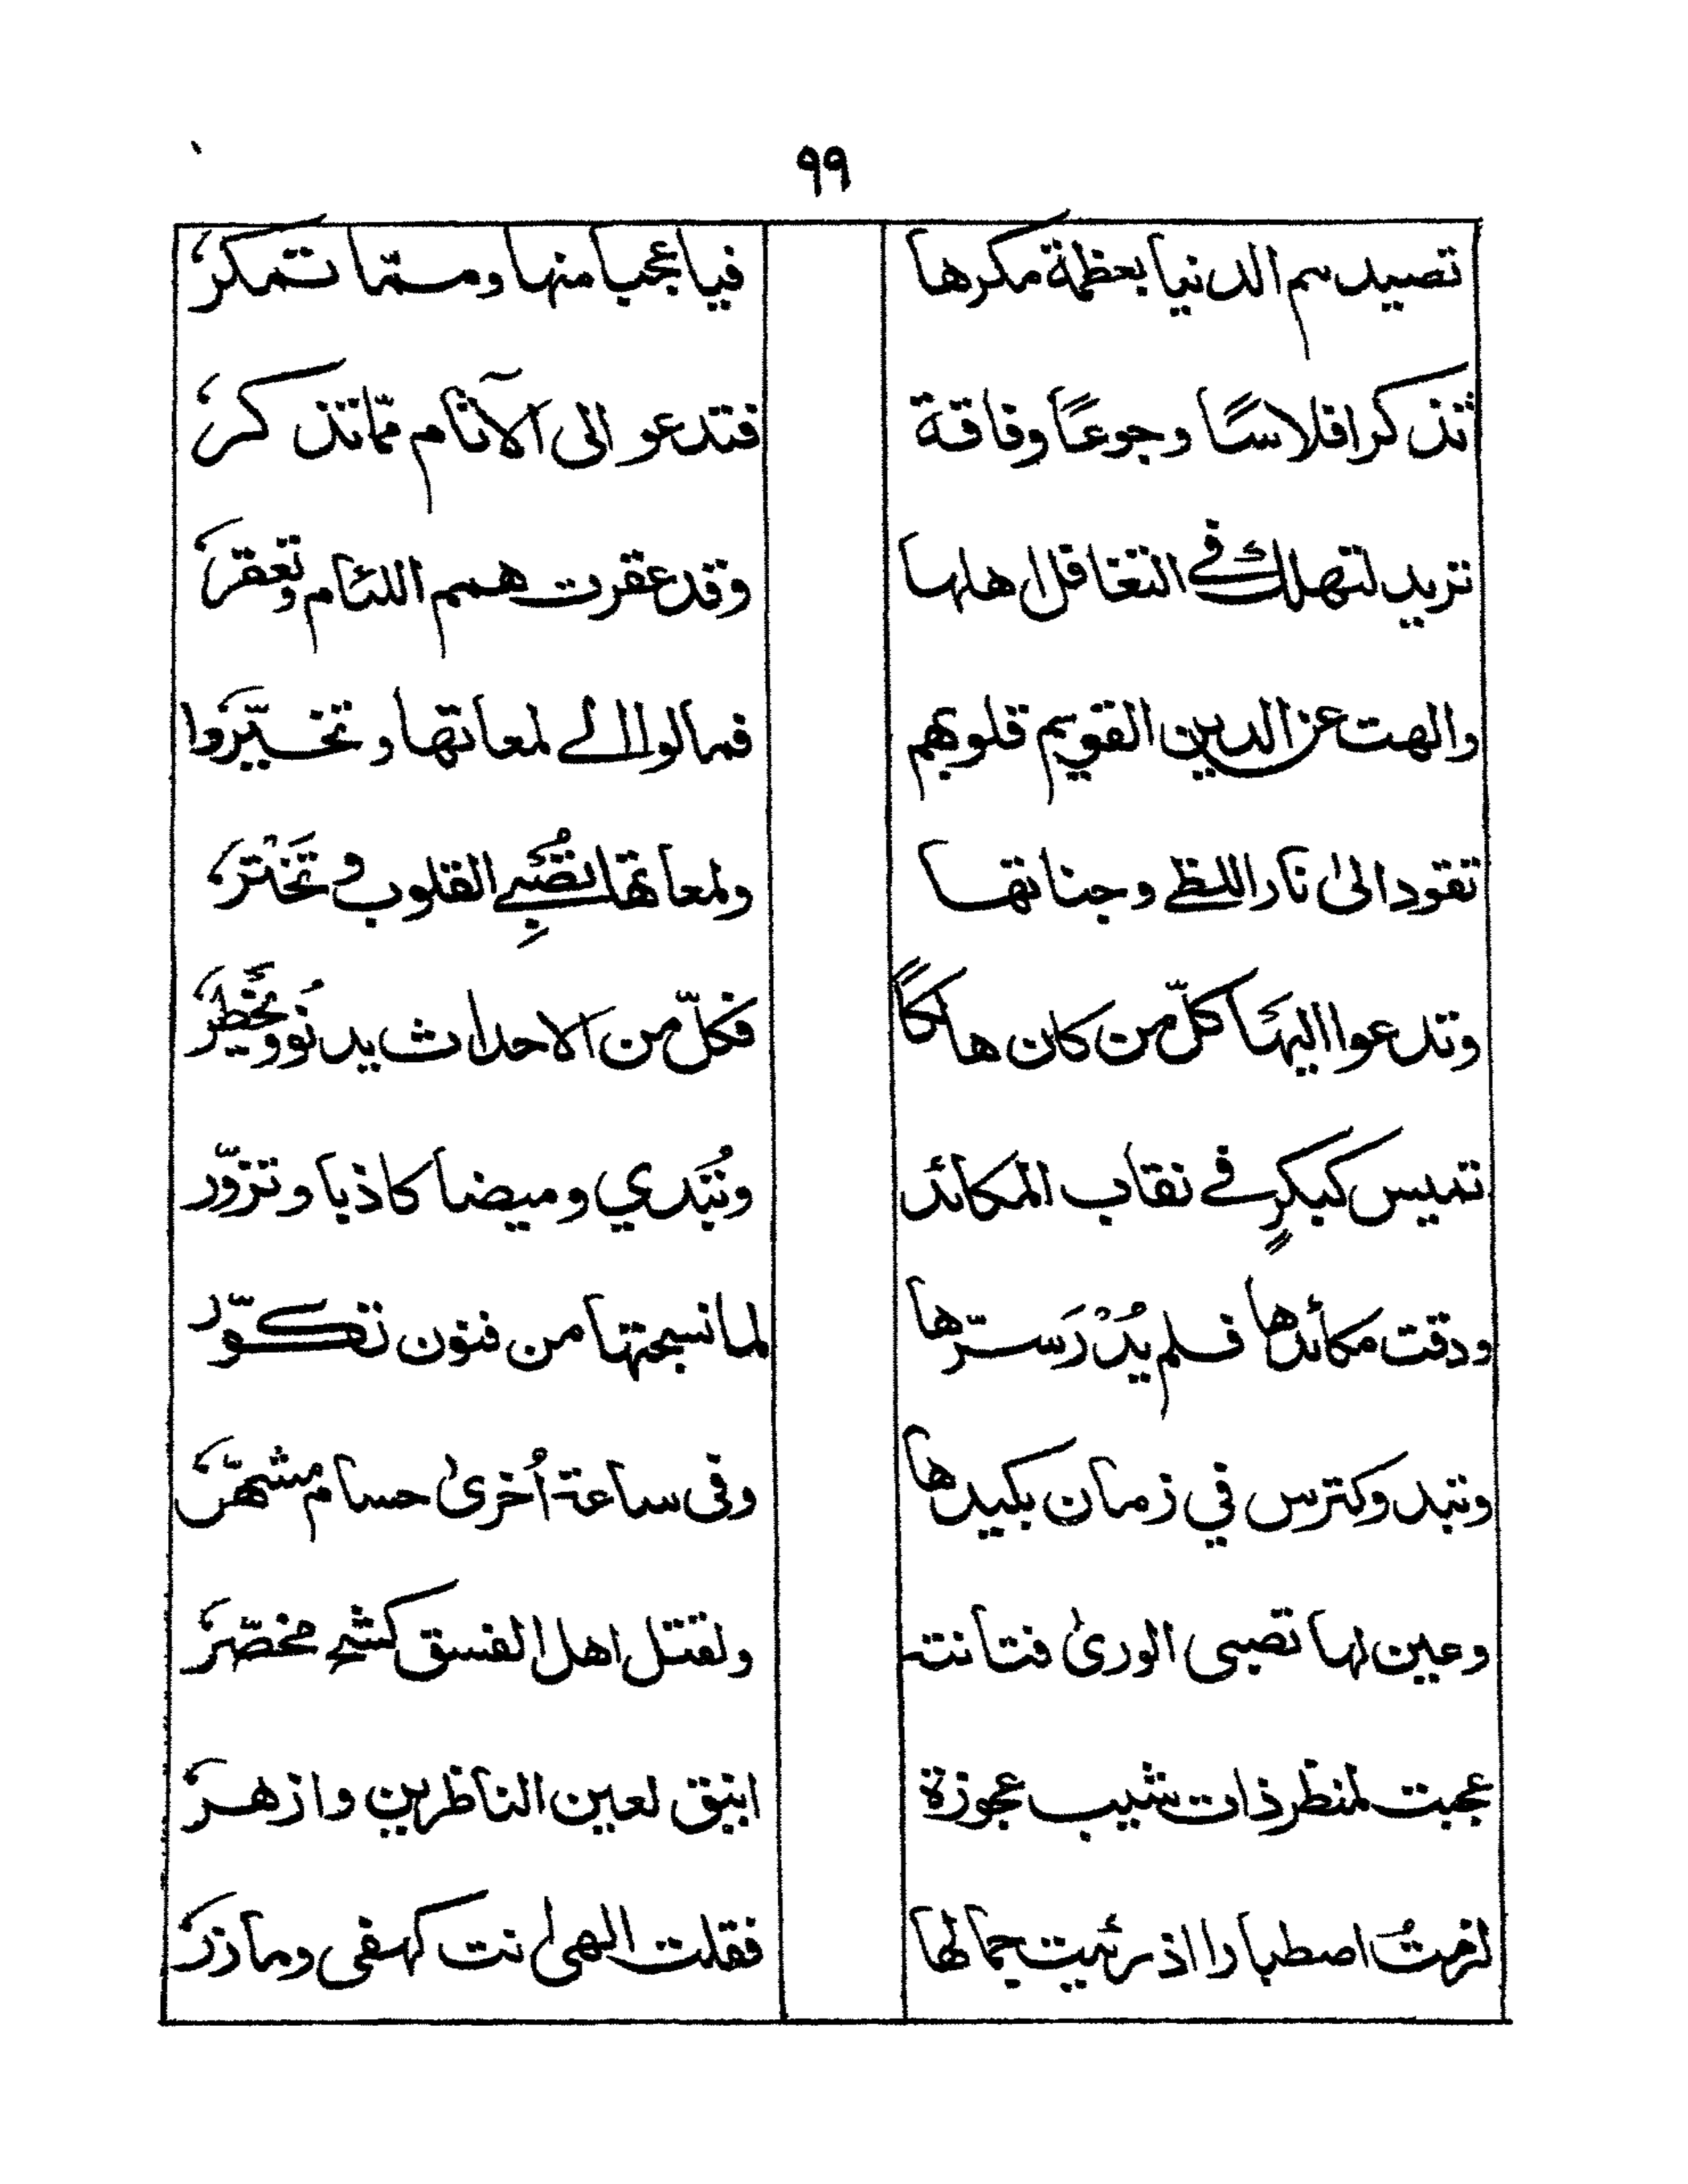 ٩٩
تصيدهم الدنيا بعظمة مكرها فيا عجبا منها ومما تمكر
تذكر افلاسًا وجوعًا وفاقة فتدعو الى الآثام مما تذكر
تريد لتهلك في التغافل اهلها وقد عقرت همم اللئام وتعقر
والهت عن الدين القويم قلوبهم فمالوا الى لمعاتها وتخيّروا
تقود الىٰ نار اللظى وجناتها ولمعاتها تُصْبِي القلوب وتَخْتر
وتدعوا اليها كلّ من كان هالكًا فكلّ من الاحداث يدنُو ويَخْطِر
تميس كبكرٍ في نقاب المكائد وتُبْدي وميضا كاذبا وتزوّر
ودقت مكائدها فلم يُدْرَ سرّها لما نسجتها من فنون تكوّر
وتبدو كترس في زمان بكيدها وفى ساعة أُخرىٰ حسام مشهّر
وعين لها تصبى الورىٰ فتانة ولقتل اهل الفسق كشح مخصّر
عجبت لمنظر ذات شيب عجوزة انيق لعين الناظرين وازهر
لزمتُ اصطبارا اذ رئيت جمالها فقلت الهى انت كهفى ومازر